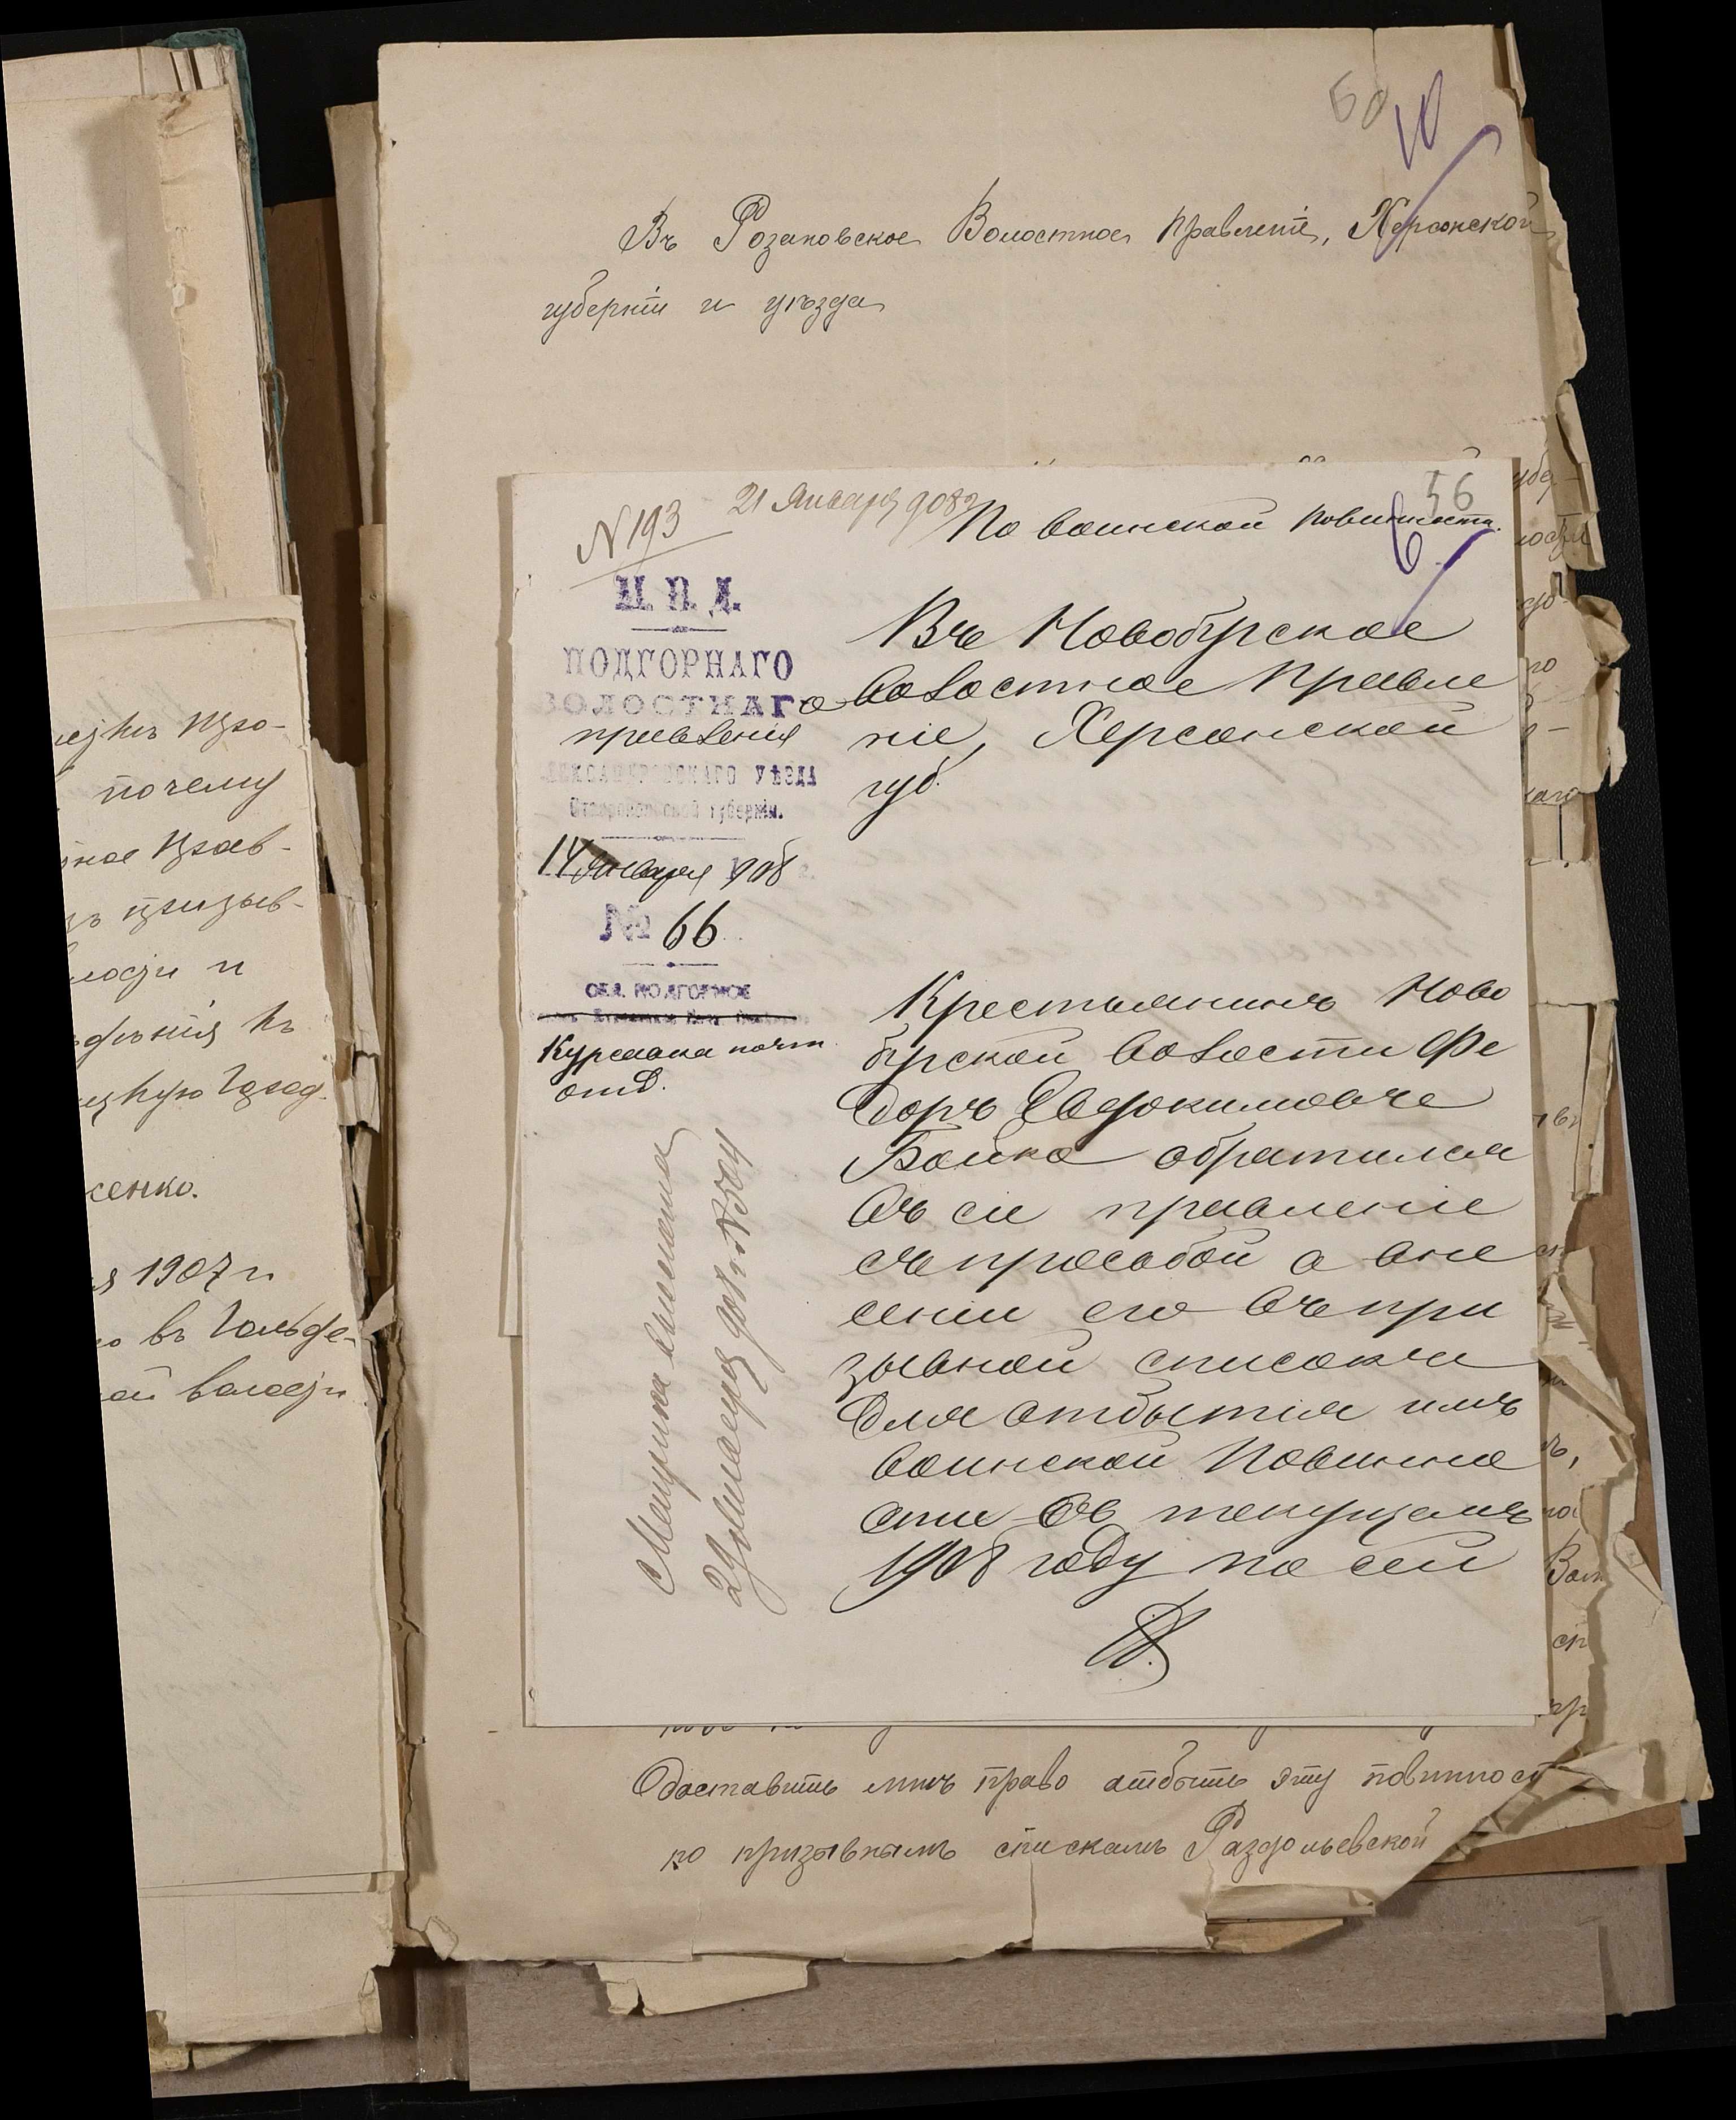 50
10
Въ Розановское Волостное Правленіе, Херсонской
губерніи и уѣзда
56
6
N 193
21 Января 908 г
По воинской повинности.
М. В. Д.
ПОДГОРНАГО
ВОЛОСТНАГО
правленія
АЛЕКСАНДРОВСКАГО УѢЗДА
Ставропольской губерніи.
14 Января 1908 г.
№ 66
СЕЛ. ПОДГОРНОЕ
Курсавка почт
отд.
Въ Новобугское
волостное Правле
ніе, Херсонской
губ.
Крестьянинъ Ново
бугской волости Фе
доръ Евдокимовъ
Бойко обратился
въ сіе правленіе
съ просьбой о вне
сеніи его въ при
зывной списокъ
для отбытія имъ
воинской повинно
сти въ текущемъ
1908 году по сей
22 января 908 г. N 504
доставить имъ право отбыть эту повинност
по призывнымъ спискамъ Раздольевской
почему
ное Прав-
призыв-
и
сенко.
1907 г.
въ
ой волости